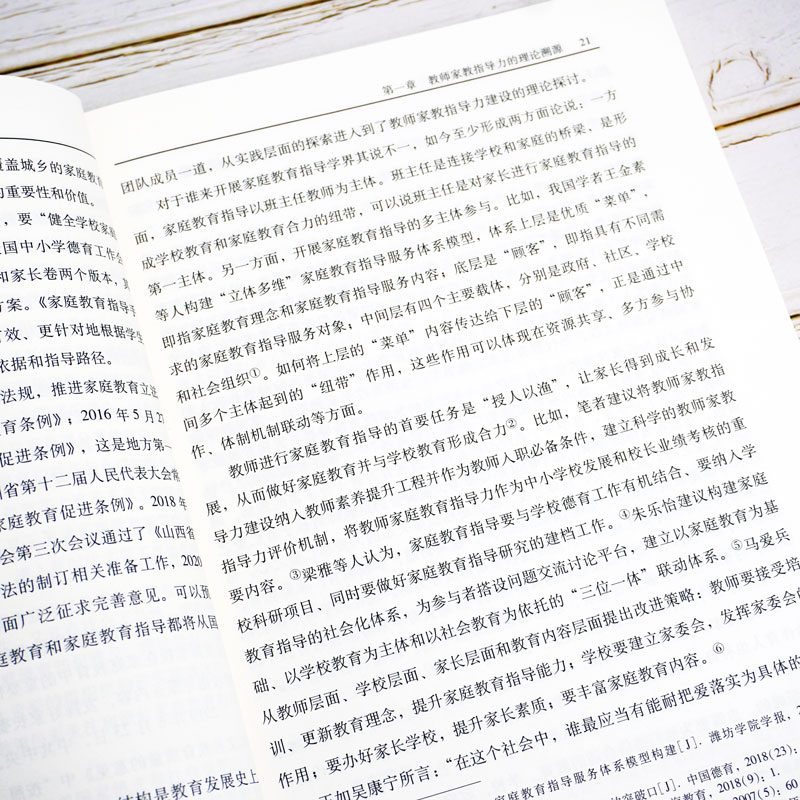 覆盖城乡的家庭教育
的重要性和价值。
，要“健全学校家庭
全国中小学德育工作会
和家长卷两个版本，
方案。《家庭教育指导手
有效、更针对地根据学生
依据和指导路径。
法规，推进家庭教育立法
育条例》；2016 年 5 月 27
促进条例》，这是地方第一
省第十二届人民代表大会常
家庭教育促进条例》。2018 年
会第三次会议通过了《山西省
法的制订相关准备工作，2020
面广泛征求完善意见。可以预
庭教育和家庭教育指导都将从国
结构是教育发展史上
第一章 教师家教指导力的理论溯源 21
团队成员一道，从实践层面的探索进入到了教师家教指导力建设的理论探讨。
对于谁来开展家庭教育指导学界其说不一，如今至少形成两方面论说：一方
面，家庭教育指导以班主任教师为主体。班主任是连接学校和家庭的桥梁，是形
成学校教育和家庭教育合力的纽带，可以说班主任是对家长进行家庭教育指导的
第一主体。另一方面，开展家庭教育指导的多主体参与。比如，我国学者王金素
等人构建“立体多维”家庭教育指导服务体系模型，体系上层是优质“菜单”，
即指家庭教育理念和家庭教育指导服务内容；底层是“顾客”，即指具有不同需
求的家庭教育指导服务对象；中间层有四个主要载体，分别是政府、社区、学校
和社会组织①。如何将上层的“菜单”内容传达给下层的“顾客”，正是通过中
间多个主体起到的“纽带”作用，这些作用可以体现在资源共享、多方参与协
作、体制机制联动等方面。
教师进行家庭教育指导的首要任务是“授人以渔”，让家长得到成长和发
展，从而做好家庭教育并与学校教育形成合力②。比如，笔者建议将教师家教指
导力建设纳入教师素养提升工程并作为教师入职必备条件，建立科学的教师家教
指导力评价机制，将教师家庭教育指导力作为中小学校发展和校长业绩考核的重
要内容。③梁雅等人认为，家庭教育指导要与学校德育工作有机结合、要纳入学
校科研项目、同时要做好家庭教育指导研究的建档工作。④朱乐怡建议构建家庭
教育指导的社会化体系，为参与者搭设问题交流讨论平台，建立以家庭教育为基
础、以学校教育为主体和以社会教育为依托的“三位一体”联动体系。⑤马爱兵
从教师层面、学校层面、家长层面和教育内容层面提出改进策略：教师要接受培
训、更新教育理念，提升家庭教育指导能力；学校要建立家委会，发挥家委会的
作用；要办好家长学校，提升家长素质；要丰富家庭教育内容。⑥
正如吴康宁所言：“在这个社会中，谁最应当有能耐把爱落实为具体的
家庭教育指导服务体系模型构建[J]. 潍坊学院学报，2
的突破口[J]. 中国德育，2018(23)：
教育，2018(9)：1.
2007(5)：60